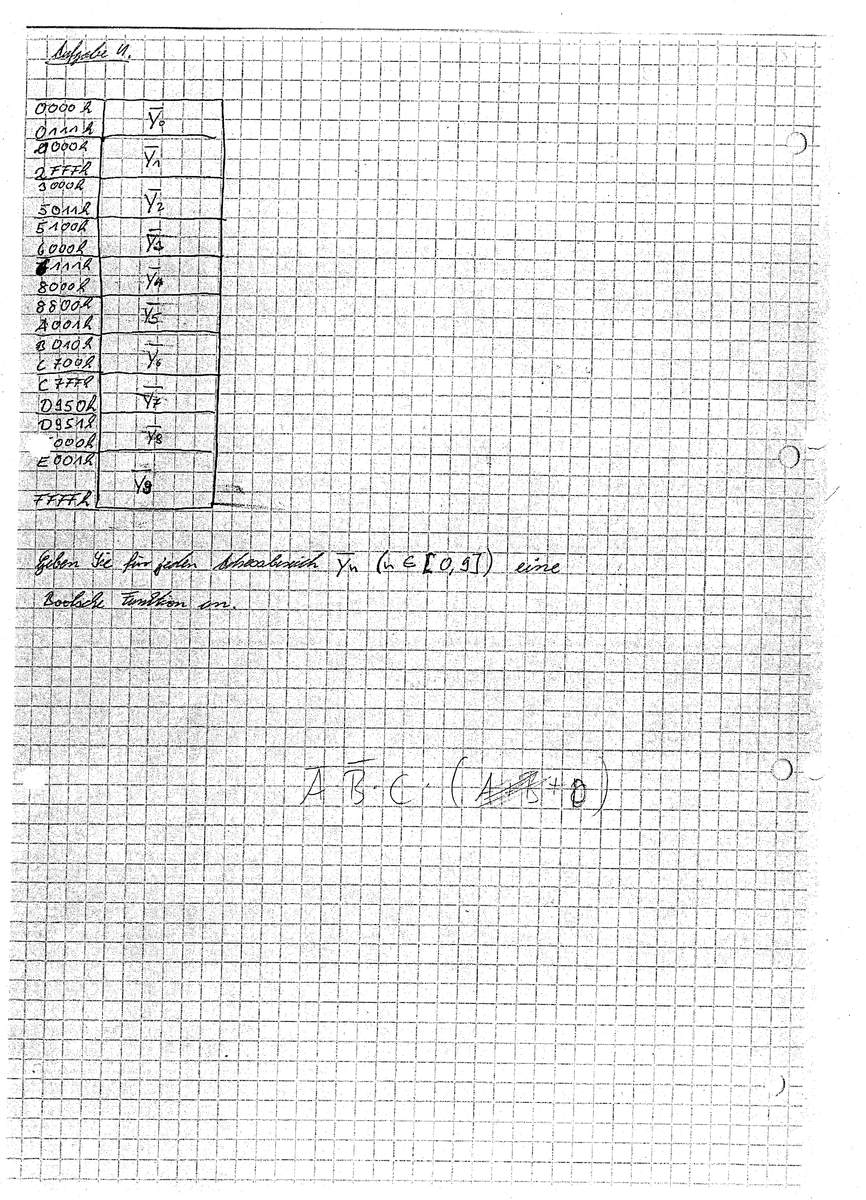 Aufgabe 4.
0000h
0111h Y̅0
1000h
2FFFh Y̅1
3000h
5011h Y̅2
5100h
6000h Y̅3
6111h
8000h Y̅4
8800h
A001h Y̅5
B010h
C700h Y̅6
C7FFh
D950h Y̅7
D951h
000h Y̅8
E001h
FFFFh Y̅9
Geben Sie für jeden Adressbereich Y̅n (n ∈ [0,9]) eine
Boolsche Funktion an.
A̅ B̅ · C · ( + D)